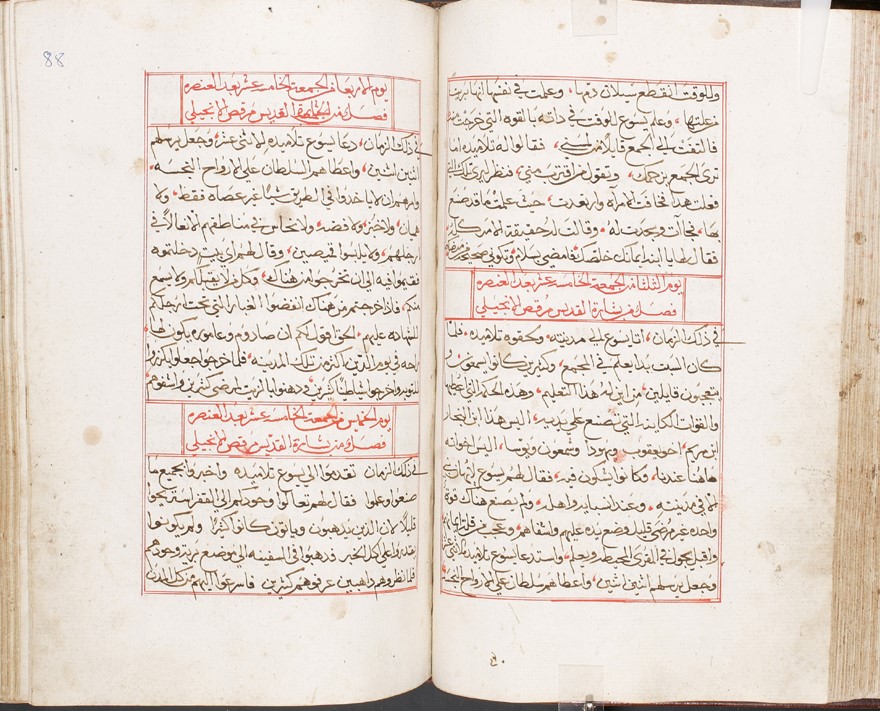 وللوقت انقطع سيلان دمها، وعملت في نفسها انها بريت
من علتها، وعلم يسوع للوقت في ذاته بالقوه التي خرجت منه
فالتفت الى الجمع قايلا من لمسني، فقالوا له تلاميذه اما
ترى الجمع يزحمك، وتقول من اقترب مني، فنظر ليرى تلك التي
فعلت هذا فخافت الامرآه وارتعدت، حيث علمت ما قد صنع
بها، فجآت وسجدت له، وقالت له حقيقة الامر كله
فقال لها يا ابنه ايمانك خلصك فامضي بسلام وتكوني صحيحه من مرضك
يوم الثلثا من الجمعة الخامسة عشر بعد العنصره
فصل من بشارة القديس مرقص الانجيلي
في ذلك الزمان، اتا يسوع الى مدينته، ولحقوه تلاميذه، فلما
كان السبت بدا يعلم في المجمع، وكثيرين كانوا يسمعون و
يتعجبون قايلين، من اين له هذا التعليم، وهذه الحكمه التي اعطيها
والقوات الكاينه التي تصنع على يديه، اليس هذا ابن النجار
ابن مريم، اخو يعقوب ويهودا وشمعون ويوسا، اليس اخواته
هاهنا عندنا، وكانوا يشكون فيه، فقال لهم يسوع لا يهان نبي
الا في مدينته، وعند انسبايه واهله، ولم يصنع هناك قوه
واحده غير مرضى قليل وضع يده عليهم واشفاهم، وعجب من قلة ايمانهم
واقبل يجول في القرى المحيطه ويعلم، واستدعا يسوع تلاميذه الاثني عشر
وجعل يرسلهم اثنين اثنين، واعطاهم سلطان على الارواح النجسه
88
يوم الاربعا من الجمعة الخامسة عشر بعد العنصره
فصل من القديس مرقص الانجيلي
في ذلك الزمان، دعا يسوع تلاميذه الاثني عشر، وجعل يرسلهم
اثنين اثنين، واعطاهم السلطان على الارواح النجسه،
وامرهم ان لا ياخذوا في الطريق شيا غير عصاه فقط، ولا
هميان، ولا خبز، ولا فضه، ولا نحاس في مناطقهم الا نعالا في
ارجلهم، ولا يلبسوا قميصين، وقال لهم اي بيت دخلتموه
فقيموا فيه الى ان تخرجوا من هناك، وكل من لا يقبلكم ولا يسمع
منكم، فاذا خرجتم من هناك انفضوا الغبار التي تحت ارجلكم
للشهاده عليهم، الحق اقول لكم ان صادوم وعاموره يكون لها
راحه في يوم الدين اكثر من تلك المدينه، فلما خرجوا جعلوا يكرزوا
بالتوبه واخرجوا شياطينا كثيرين، ودهنوا بالزيت لمرضى كثيرين واشفوهم
يوم الخميس من الجمعة الخامسة عشر بعد العنصره
فصل من بشارة القديس مرقص الانجيلي
في ذلك الزمان تقدموا الى يسوع تلاميذه واخبروا بجميع ما
صنعوا وعملوا فقال لهم تعالوا وحدكم الى القفر استريحوا
قليلا لان الذين يذهبون وياتون كانوا كثيرا ولم يكونوا
يقدروا على اكل الخبز فذهبوا في السفينه الى موضع بريه وحدهم
فلما نظروهم ذاهبين عرفوهم كثيرين فاسرعوا اليهم من كل المدن